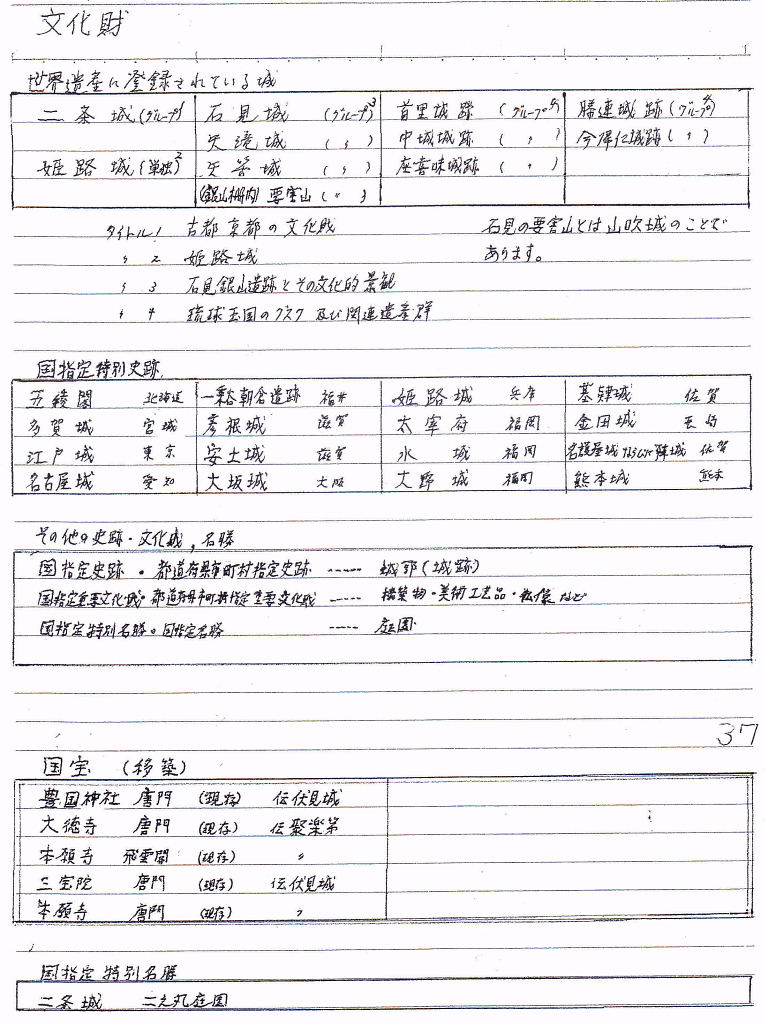 文化財
世界遺産に登録されている城
二条城(グループ1) 石見城 (グループ3) 首里城跡 (グループ4) 勝連城跡(グループ4)
矢滝城 (〃) 中城城跡 (〃) 今帰仁城跡(〃)
姫路城(単独2) 矢筈城 (〃) 座喜味城跡 (〃)
(銀山柵内) 要害山 (〃)
タイトル1 古都京都の文化財 石見の要害山とは山吹城のことで
〃 2 姫路城 あります。
〃 3 石見銀山遺跡とその文化的景観
〃 4 琉球王国のグスク及び関連遺産群
国指定特別史跡
五稜閣 北海道 一乗谷朝倉遺跡 福井 姫路城 兵庫 基肄城 佐賀
多賀城 宮城 彦根城 滋賀 太宰府 福岡 金田城 長崎
江戸城 東京 安土城 滋賀 水城 福岡 名護屋城ならびに陣城 佐賀
名古屋城 愛知 大坂城 大阪 大野城 福岡 熊本城 熊本
その他の史跡・文化城,名勝
国指定史跡・都道府県市町村指定史跡 ----- 城郭(城跡)
国指定重要文化財・都道府県市町村指定重要文化財 ----- 構築物・美術工芸品・など
国指定特別名勝・国指定名勝 ----- 庭園
37
国宝 (移築)
豊国神社 唐門 (現存) 伝伏見城
大徳寺 唐門 (現存) 伝聚楽第
本願寺 飛雲閣 (現存) 〃
三宝院 唐門 (現存) 伝伏見城
本願寺 唐門 (現存) 〃
国指定特別名勝
二条城 二之丸庭園